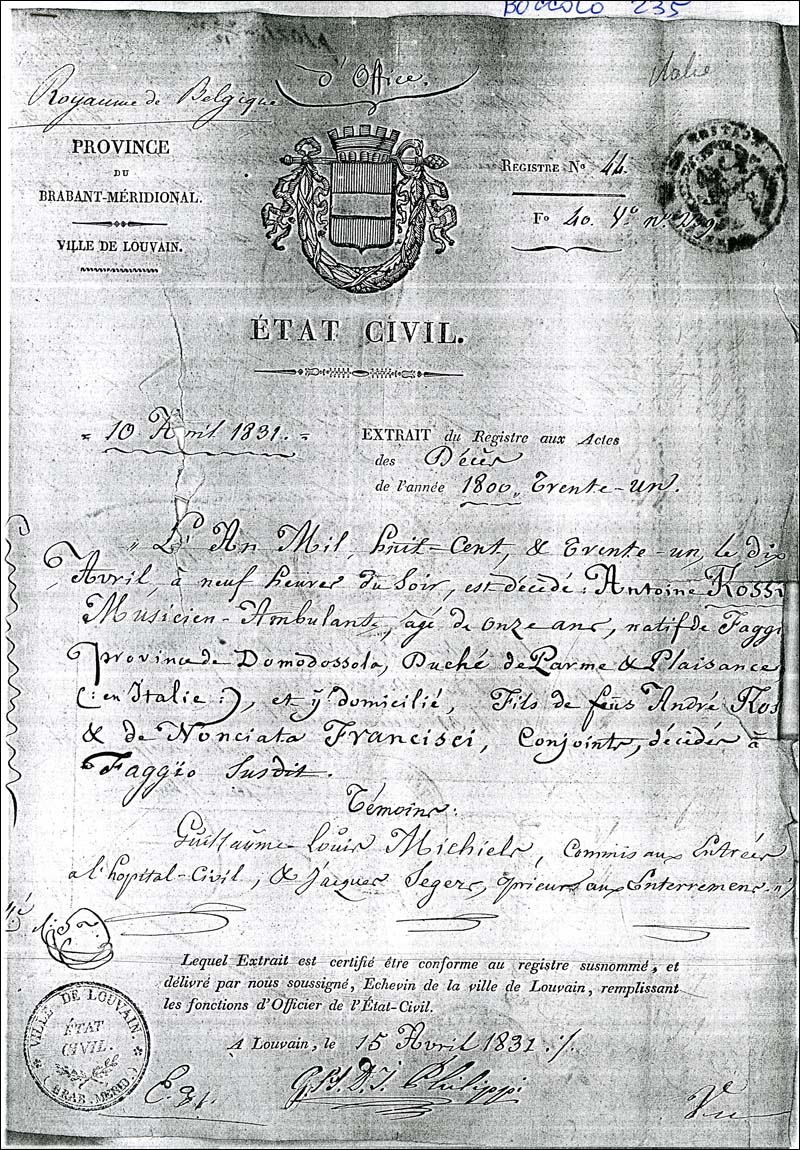 BOCCOLO 235
d'Office.
Italie
Royaume de Belgique
PROVINCE
DU
BRABANT-MÉRIDIONAL.
VILLE DE LOUVAIN.
REGISTRE Nº 44.
Fº 40. Vº nº
ÉTAT CIVIL.
= 10 Avril 1831. =
EXTRAIT du Registre aux Actes
des Décès
de l'année 1800,, Trente-Un.
,, L'An Mil, huit-Cent, & Trente-un, le dix
Avril, à neuf heures du Soir, est décédé : Antoine Rossi
Musicien-Ambulante, agé de onze ans, natif de Faggi
province de Domodossola, Duché de Parme & Plaisance
(: en Italie :), et y domicilié, Fils de feüs André Ros
& de Nonciata Francisci, Conjoints, décédés à
Faggïo Susdit.
Témoins :
Guillaume-Louis Michiels, Commis aux Entrées
a l'hopital-Civil, & Jacques Segers, prieur aux Enterremens
Lequel Extrait est certifié être conforme au registre susnommé, et
délivré par nous soussigné, Echevin de la ville de Louvain, remplissant
les fonctions d'Officier de l'État-Civil.
A Louvain, le 15 Avril 1831 ./.
VILLE DE LOUVAIN.
ÉTAT
CIVIL.
(BRAB. MERID.)
Philippi
Vu